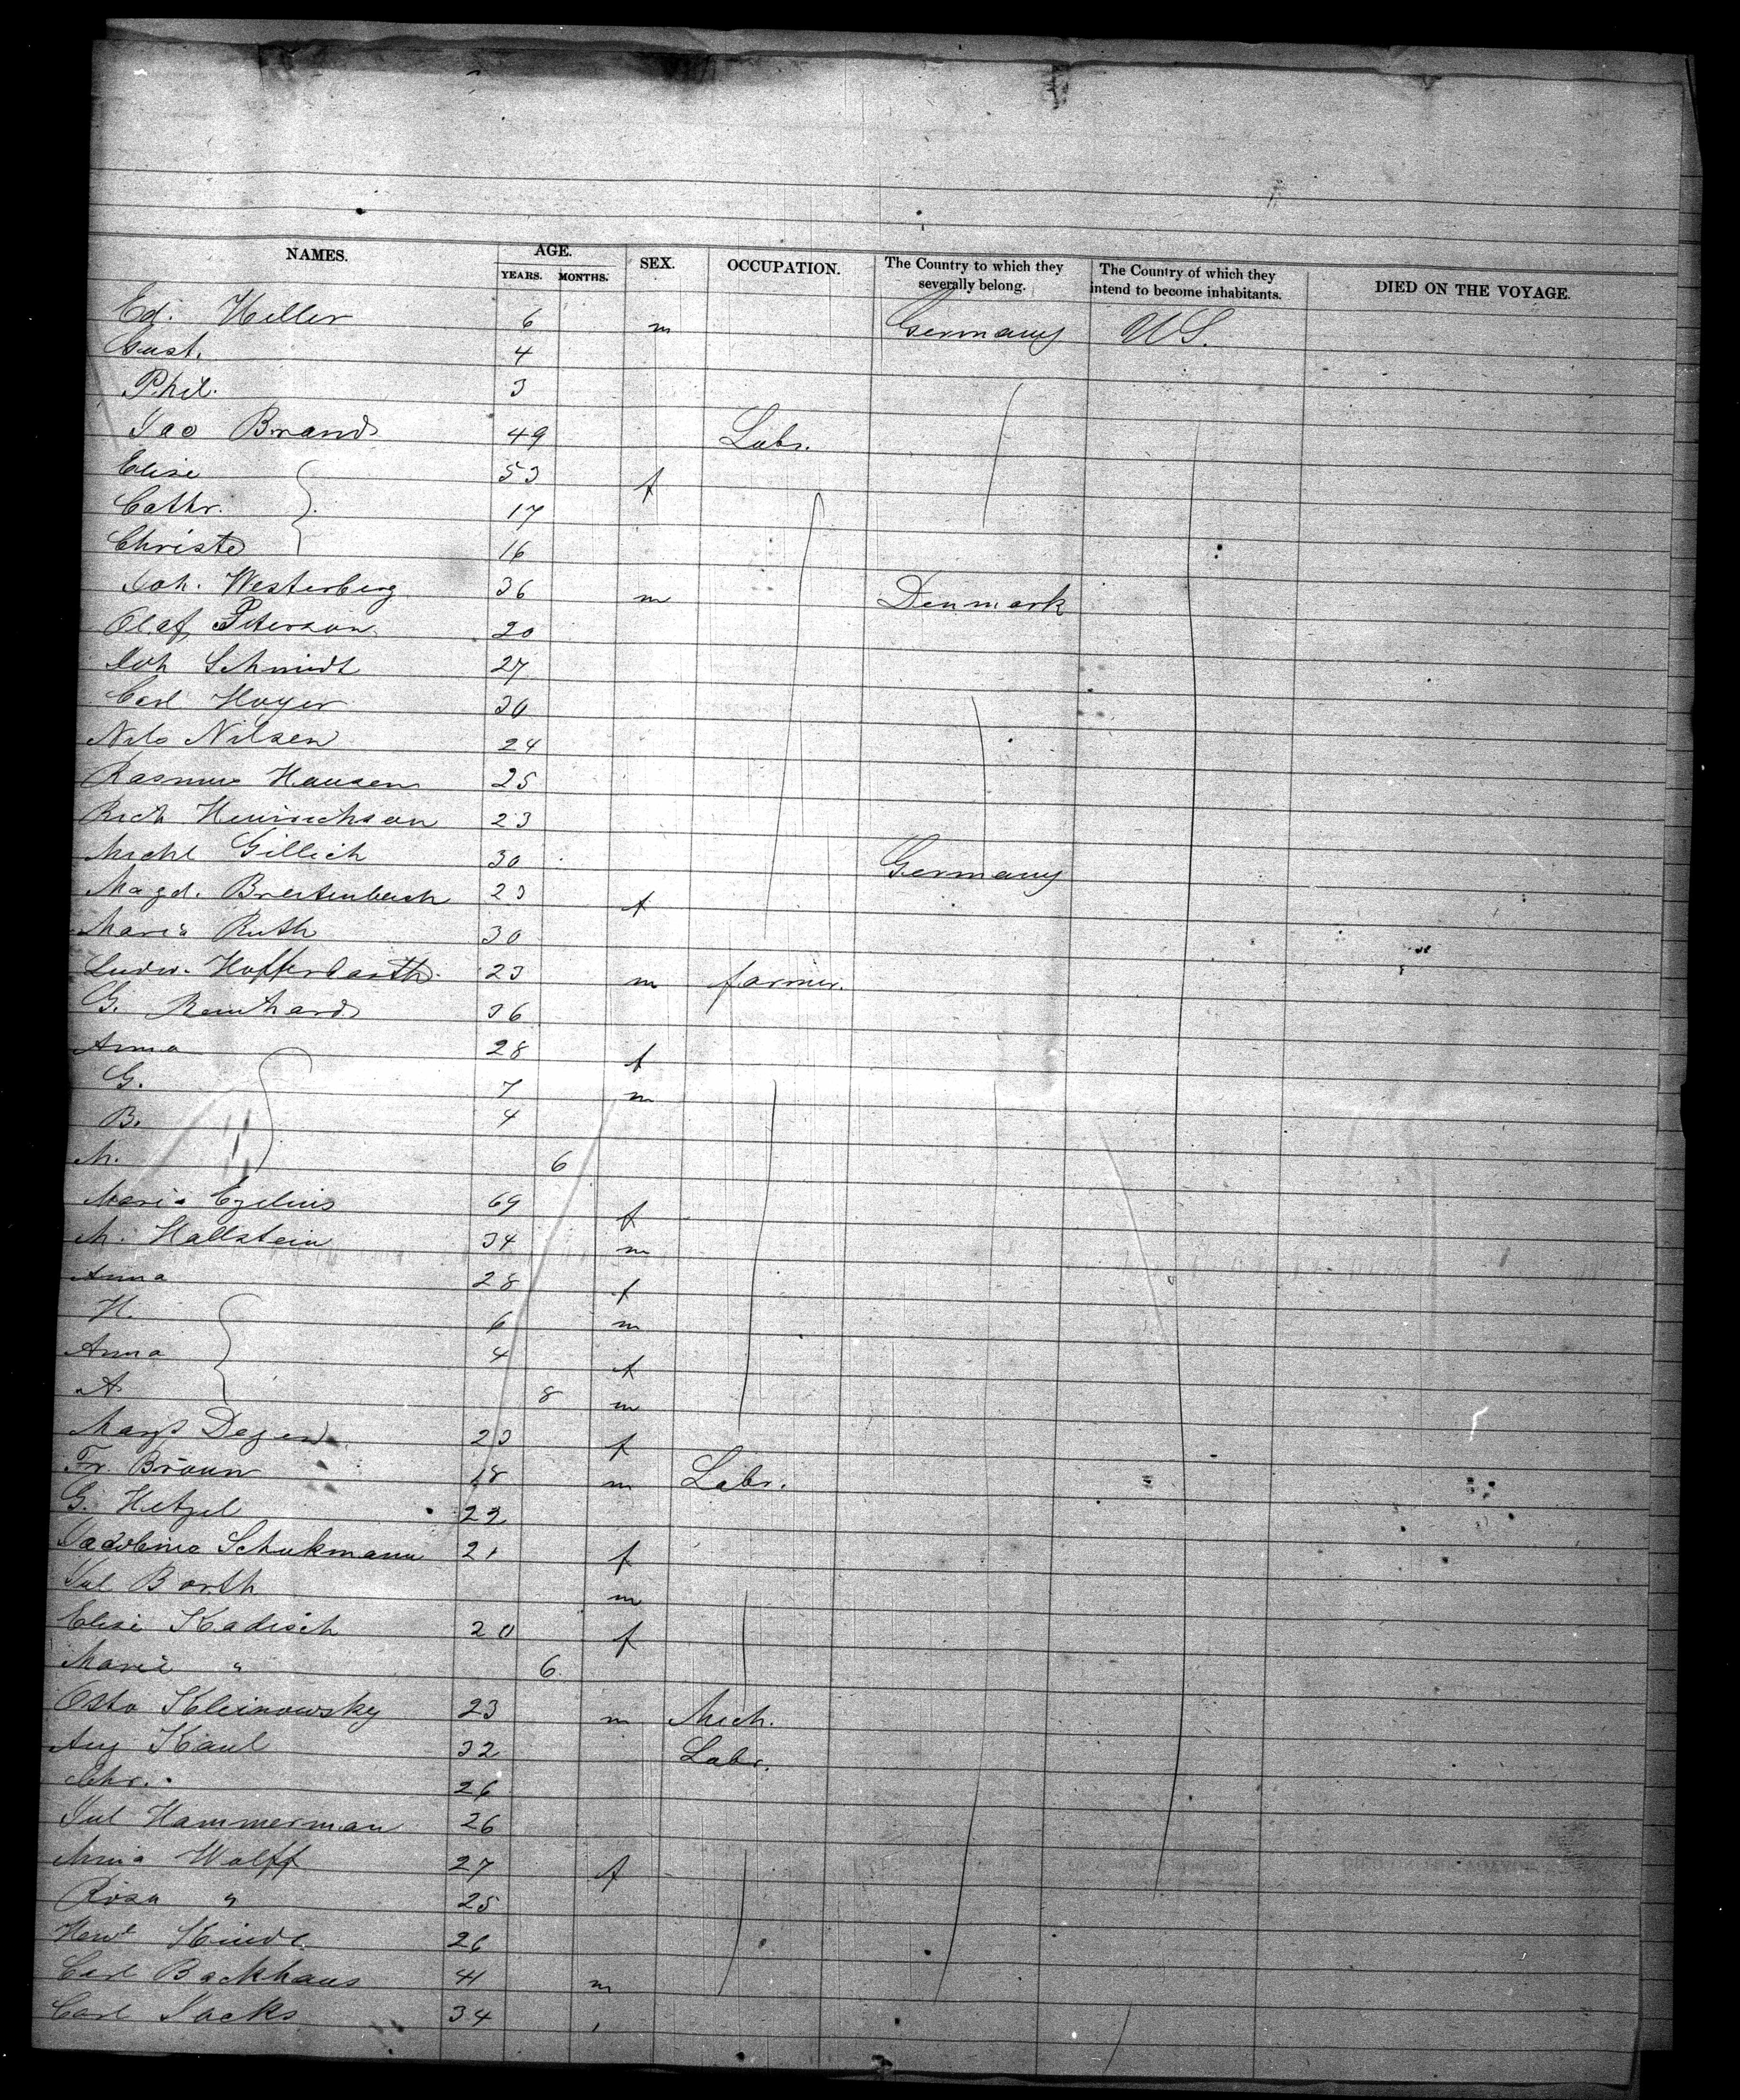 NAMES. AGE. SEX. OCCUPATION. The Country to which they severally belong. The Country of which they intend to become inhabitants. DIED ON THE VOYAGE.
YEARS. MONTHS.
Ed. Heller 6 m Germany U S.
Gust. 4
Phil. 3
Jac Brand 49 Labr.
Elise 53 f
Cathr. 17
Christe 16
Joh. Westerberg 36 m Denmark
Olaf Peterson 20
Joh Schmidt 27
Carl Hoyer 30
Nils Nilsen 24
Rasmus Hansen 25
Rich Heinrichson 23
Michl Gillich 30 Germany
Magd. Breitenbach 23 f
Maria Ruth 30
Ludw. Hofferbarth 23 m farmer.
G. Reinhard 36
Anna 28 f
G. 7 m
B. 4
M. 6
Maria 69 f
M. Hallstein 34 m
Anna 28 f
H. 6 m
Anna 4 f
A 8 m
Margt Degen 23 f
Fr. Braun 18 m Labr.
G. Hetzel 22
Jacobina Schukmann 21 f
Jul Barth m
Elise Kadisch 20 f
Marie " 6
Otto Kleinowsky 23 m Mech.
Aug Kaul 32 Labr.
Chr. 26
Jul Hammerman 26
Anna Wolff 27 f
Rosa " 25
26
Carl Backhaus 41 m
Carl Sacks 34